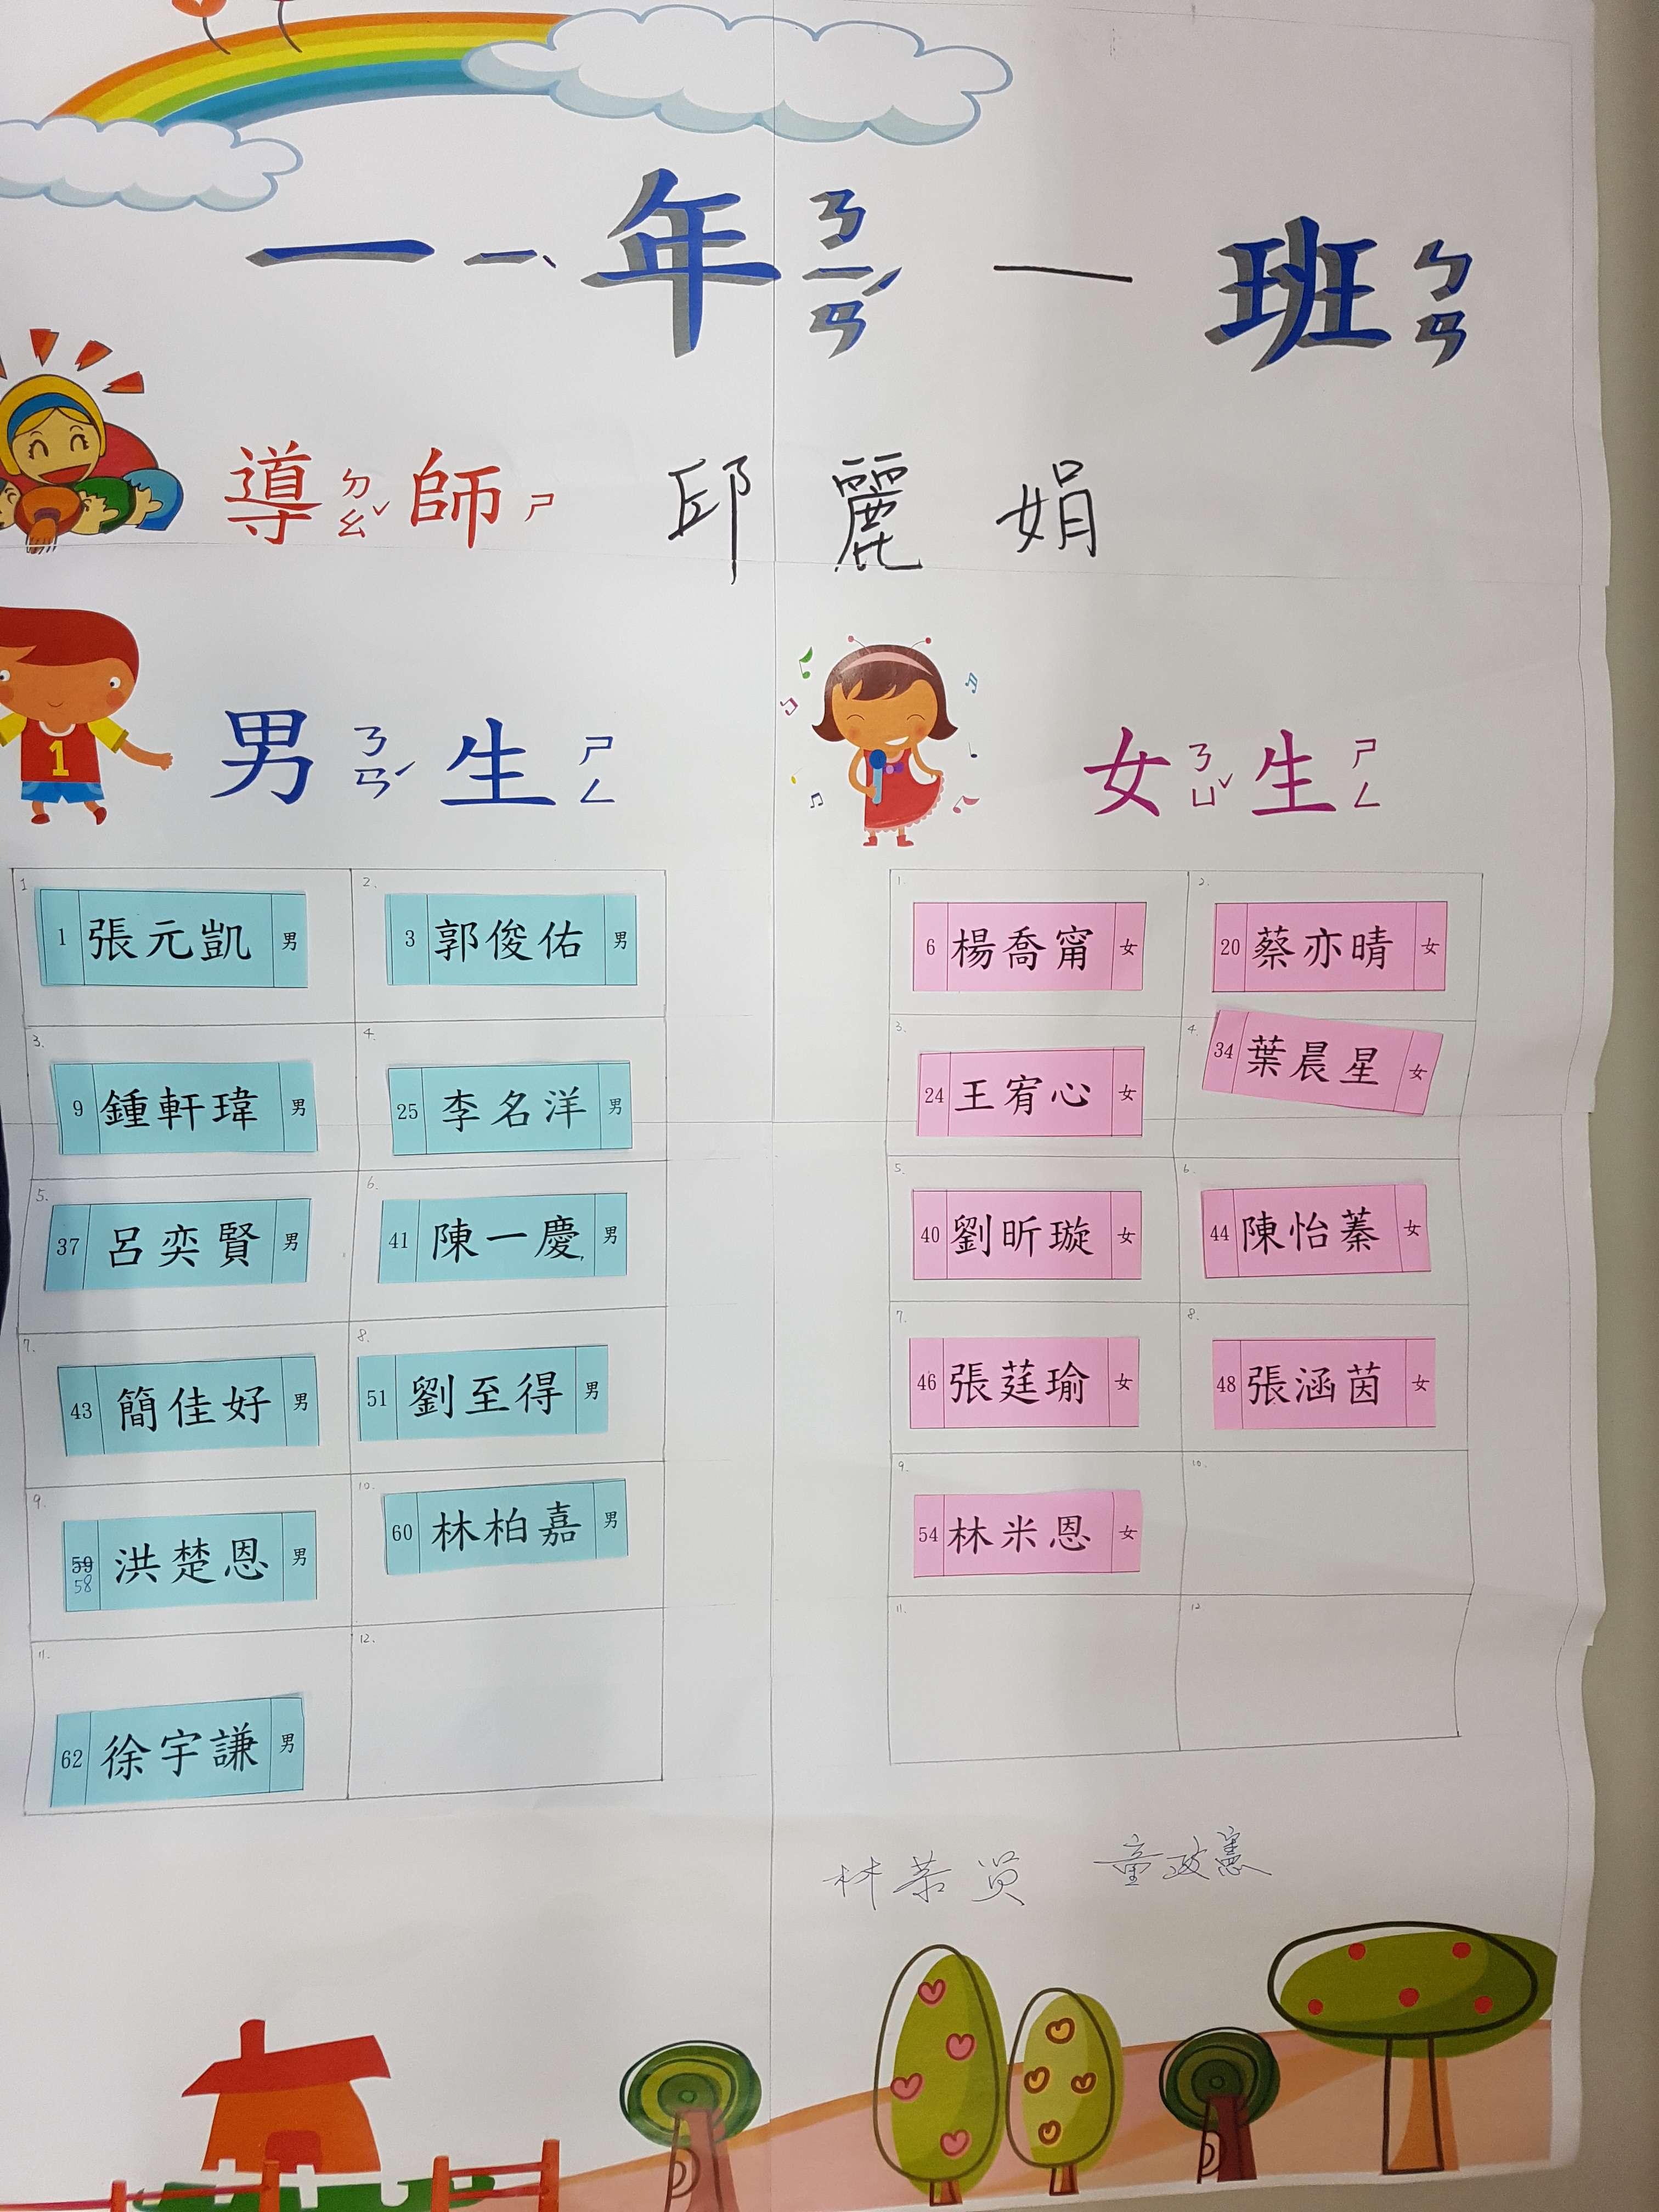 一 ㄧˋ 年 ㄋㄧㄢˊ 一 班 ㄅㄢ
導 ㄉㄠˇ 師 ㄕ 邱麗娟
男 ㄋㄢˊ 生 ㄕㄥ 女 ㄋㄩˇ 生 ㄕㄥ
1
1 張元凱 男
2.
3 郭俊佑 男
3.
9 鍾軒瑋 男
4.
25 李名洋 男
5.
37 呂奕賢 男
6.
41 陳一慶 男
7.
43 簡佳好 男
8.
51 劉至得 男
9.
59 58 洪楚恩 男
10.
60 林柏嘉 男
11.
62 徐宇謙 男
12.
1.
6 楊喬甯 女
2.
20 蔡亦晴 女
3.
24 王宥心 女
4.
34 葉晨星 女
5.
40 劉昕璇 女
6.
44 陳怡蓁 女
7.
46 張莛瑜 女
8.
48 張涵茵 女
9.
54 林米恩 女
10.
11.
12
童政憲
1